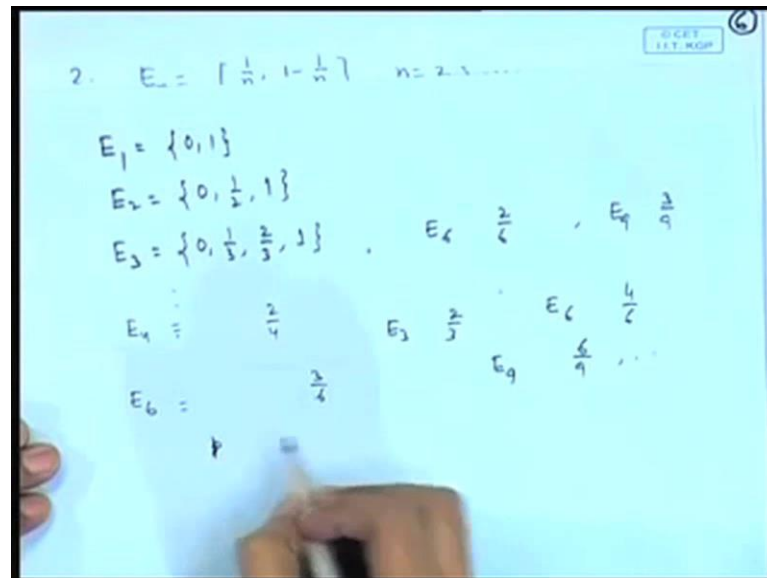 6
© CET
I.I.T. KGP
2. Eₙ = [ 1/n, 1 - 1/n ] n = 2, 3 ....
E₁ = {0, 1}
E₂ = {0, 1/2, 1}
E₃ = {0, 1/3, 2/3, 1} . E₆ 2/6 , E₉ 3/9
E₄ = 2/4 E₃ 2/3 E₆ 4/6
E₉ 6/9 , ...
E₆ = 3/6